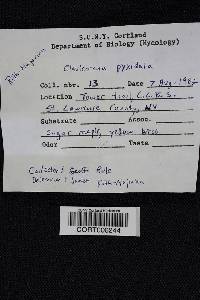 S.U.N.Y. Cortland
Department of Biology (Mycology)
Clavicorona pyxidata
Coll. nbr. 13 Date 7 Aug. 1985
Location Tower Hill, C.L.B.S.
St. Lawrence County, NY
Substrate Assoc.
Sugar maple, yellow birch
Odor Taste
Collector: Scott
Determiner:
CORT008244